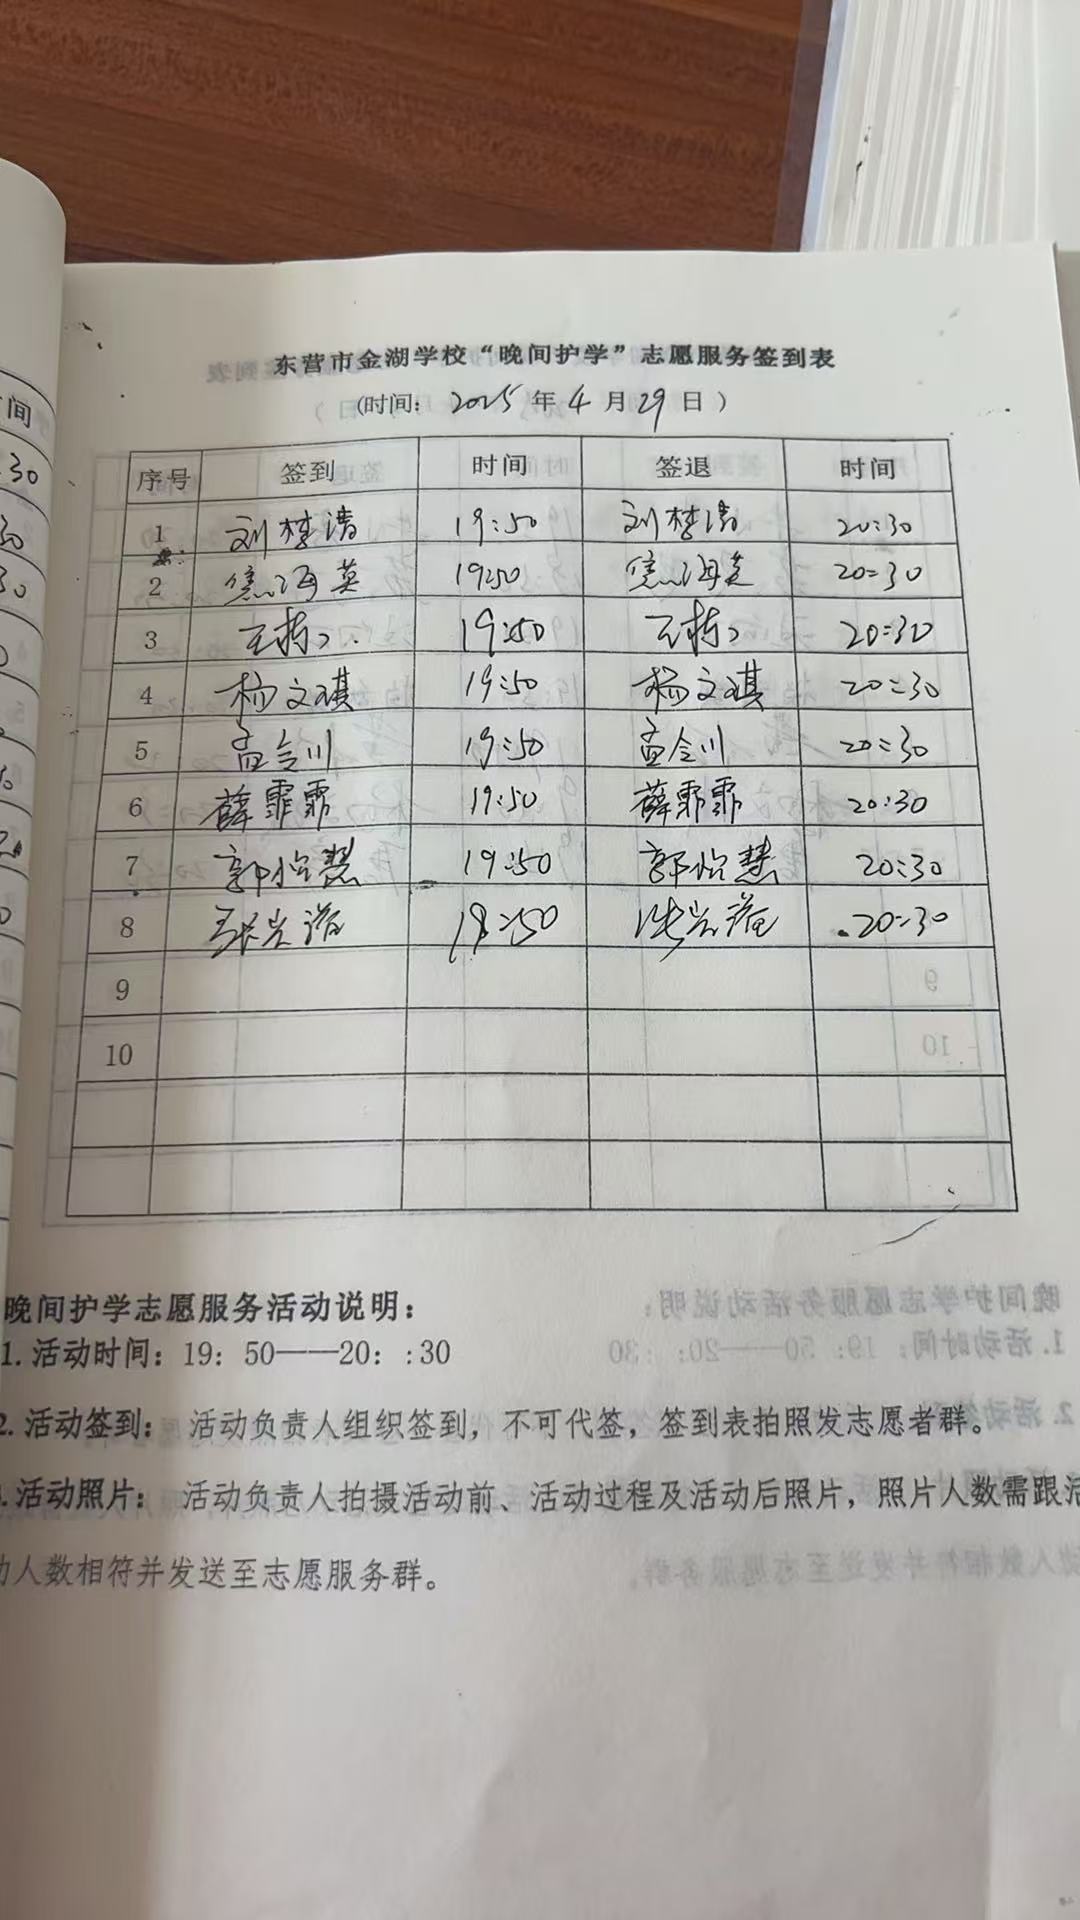 东营市金湖学校“晚间护学”志愿服务签到表
(时间: 2025 年 4 月 29 日 )
序号 签到 时间 签退 时间
1 刘梦清 19:50 刘梦清 20:30
2 焦海英 19:50 焦海英 20:30
3 19:50 20:30
4 杨文琪 19:50 杨文琪 20:30
5 孟令川 19:50 孟令川 20:30
6 薛霏霏 19:50 薛霏霏 20:30
7 郭怡慧 19:50 郭怡慧 20:30
8 19:50 20:30
9
10
晚间护学志愿服务活动说明：
1.活动时间：19：50——20：:30
2.活动签到： 活动负责人组织签到，不可代签，签到表拍照发志愿者群。
.活动照片： 活动负责人拍摄活动前、活动过程及活动后照片，照片人数需跟活
动人数相符并发送至志愿服务群。
间
:30
30
30